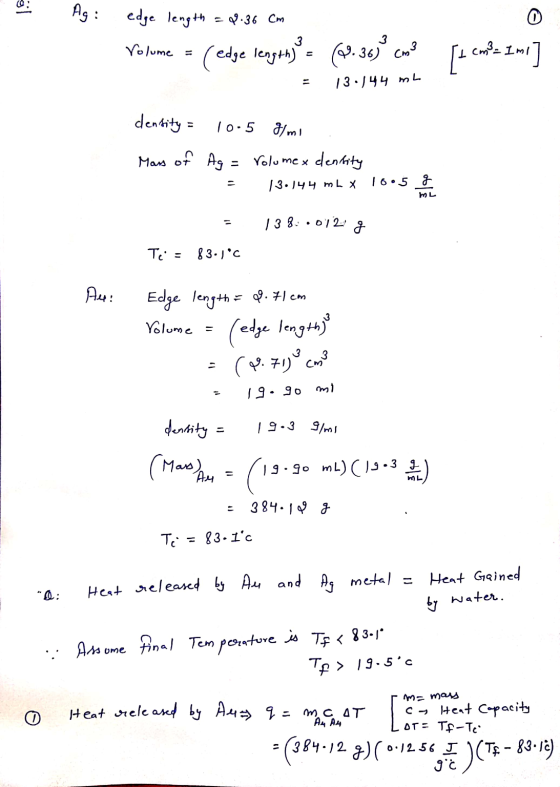 Q:
Ag: edge length = 2.36 cm ①
Volume = (edge length)³ = (2.36)³ cm³ [1 cm³ = 1 ml]
= 13.144 mL
density = 10.5 g/ml
Mass of Ag = Volume x density
= 13.144 mL x 10.5 g/mL
= 138.012 g
Ti = 83.1°C
Au: Edge length = 2.71 cm
Volume = (edge length)³
= (2.71)³ cm³
= 19.90 ml
density = 19.3 g/ml
(Mass)Au = (19.90 mL)(19.3 g/mL)
= 384.12 g
Ti = 83.1°C
"Q: Heat released by Au and Ag metal = Heat Gained
by water.
∵ Assume final Temperature is Tf < 83.1°
Tf > 19.5°C
① Heat released by Au ⇒ q = mAu CAu ΔT [m = mass
C → Heat Capacity
ΔT = Tf - Ti]
= (384.12 g)(0.1256 J/g°C)(Tf - 83.1°C)